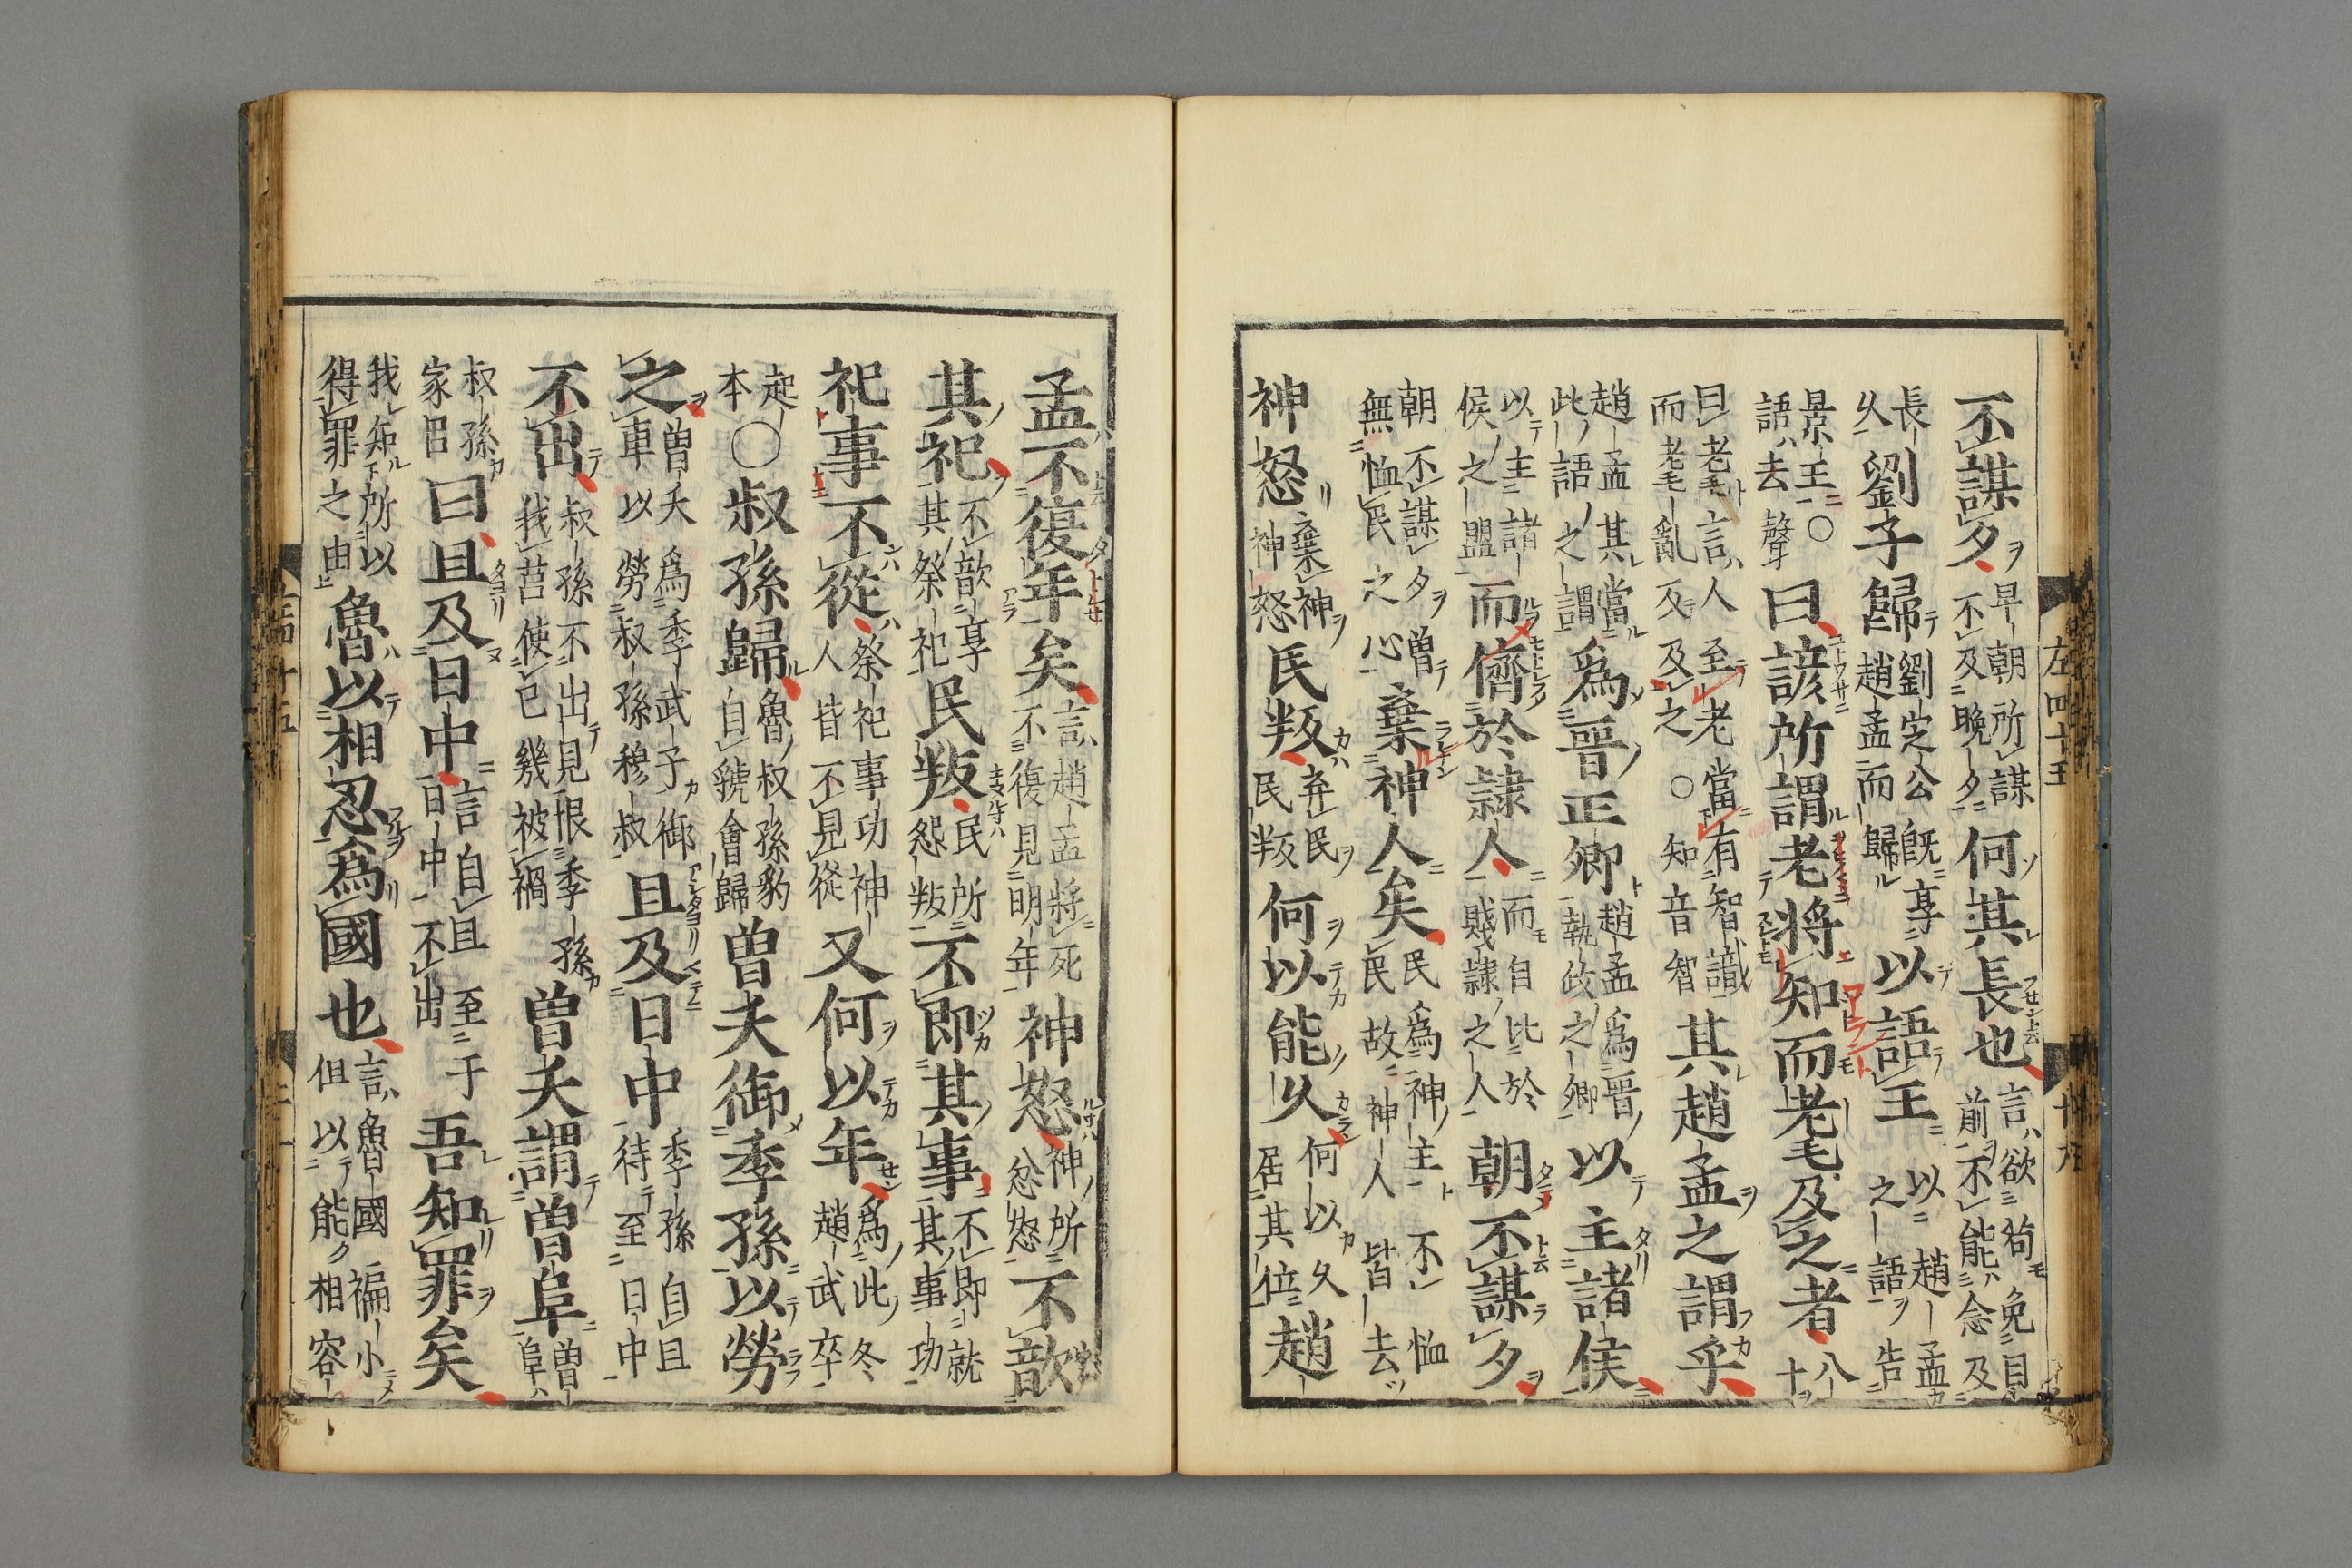 不謀夕早朝所謀不及晩夕何其長也言欲苟免目前不能念及
長久劉子歸劉定公既享趙孟而歸以語王以趙孟之語告
景王○語去聲曰諺所謂老將知而耄及之者八十
曰耄言人至老當有智識而耄亂及之○知音智其趙孟之謂乎
趙孟其當此語之謂爲晉正卿趙孟爲晉執政之卿以主諸侯
以主諸侯之盟而儕於隷人而自比於賤隷之人朝不謀夕
朝不謀夕曽無恤民之心棄神人矣民爲神主不恤民故神人皆去
神怒棄神神怒民叛弃民民叛何以能久何以久居其位趙
孟不復年矣言趙孟將死不復見明年神怒神所忿怒不歆
其祀不歆享其祭祀民叛民所怨叛不即其事不即就其事功
祀事不從祭祀事功神人皆不見從又何以年爲此冬趙武卒
起本○叔孫歸魯叔孫豹自虢會歸曽夭御季孫以勞
之曽夭爲季武子御車以勞叔孫穆叔且及日中季孫自且待至日中
不出叔孫不出見恨季孫我莒使已幾被禍曽夭謂曽阜曽阜
叔孫家臣曰且及日中言自且至于日中不出吾知罪矣
我知所以得罪之由魯以相忍爲國也言魯國褊小但以能相容
左四十五